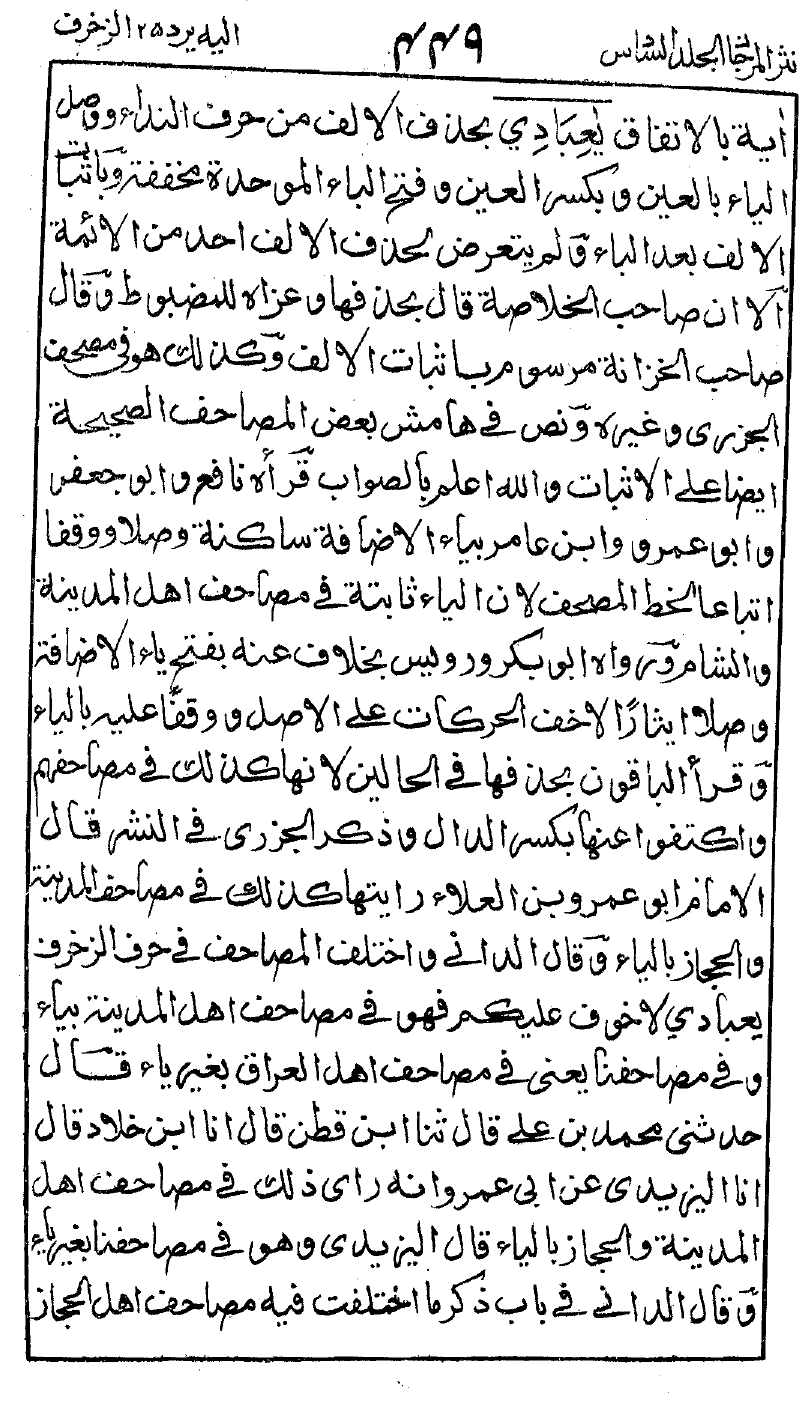 نثر المرجان المجلد السادس
٤٤٩
اليه يرد ٢٥ الزخرف
أية بالاتفاق يٰعِبَادِي بحذف الالف من حرف النداء ووصل
الياء بالعين وبكسر العين وفتح الباء الموحدة مخففة وباثبات
الالف بعد الباء ولم يتعرض لحذف الالف احد من الائمة
الا ان صاحب الخلاصة قال بحذفها وعزاه للمضبوط وقال
صاحب الخزانة مرسوم باثبات الالف وكذلك هو في مصحف
الجزرى وغيره ونص في هامش بعض المصاحف الصحيحة
ايضا على الاثبات والله اعلم بالصواب قرأه نافع وابو جعفر
وابو عمرو وابن عامر بياء الاضافة ساكنة وصلا ووقفا
اتباعا لخط المصحف لان الياء ثابتة في مصاحف اهل المدينة
والشام ورواه ابو بكر ورويس بخلاف عنه بفتح ياء الاضافة
وصلا ايثارًا لاخف الحركات على الاصل ووقفًا عليه بالياء
وقرأ الباقون بحذفها في الحالين لانها كذلك في مصاحفهم
واكتفوا عنها بكسر الدال وذكر الجزرى في النشر قال
الامام ابو عمرو بن العلاء رايتها كذلك في مصاحف المدينة
والحجاز بالياء وقال الدانى واختلف المصاحف في حرف الزخرف
يعبادي لا خوف عليكم فهو في مصاحف اهل المدينة بياء
وفي مصاحفنا يعنى في مصاحف اهل العراق بغير ياء قال
حدثنى محمد بن على قال ثنا ابن قطن قال انا ابن خلاد قال
انا اليزيدى عن ابى عمرو انه راى ذلك في مصاحف اهل
المدينة والحجاز بالياء قال اليزيدى وهو في مصاحفنا بغير ياء
وقال الدانى في باب ذكر ما اختلفت فيه مصاحف اهل الحجاز